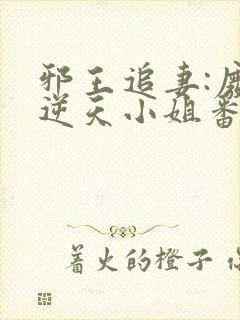 邪王追妻:
逆天小姐番
着火的橙子